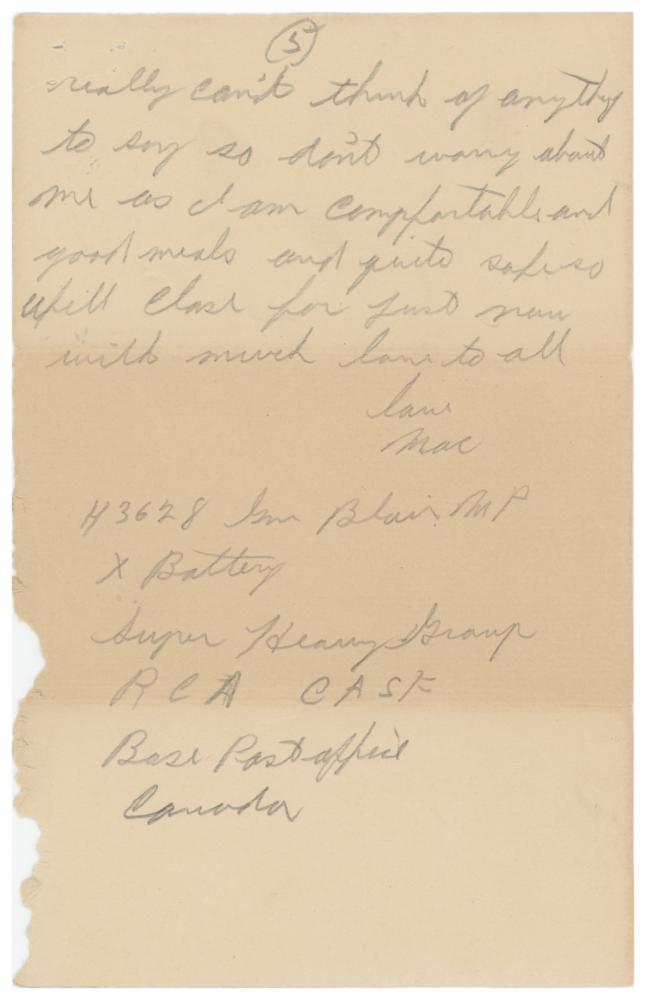 5
really can't think of anything
to say so don't worry about
me as I am compfortable and
good meals and quite safe so
will close for just now
with much love to all
love
Mac
H3628 Gnr Blair MP
X Battery
Super Heavy Group
RCA CASF
Base Post office
Canada